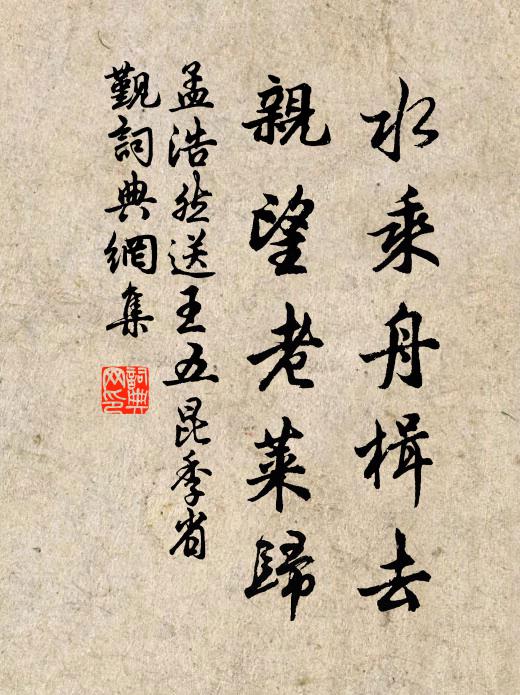 水乘舟楫去
親望老萊歸
孟浩然送王五昆季省
覲詞典網集
詞典
网印